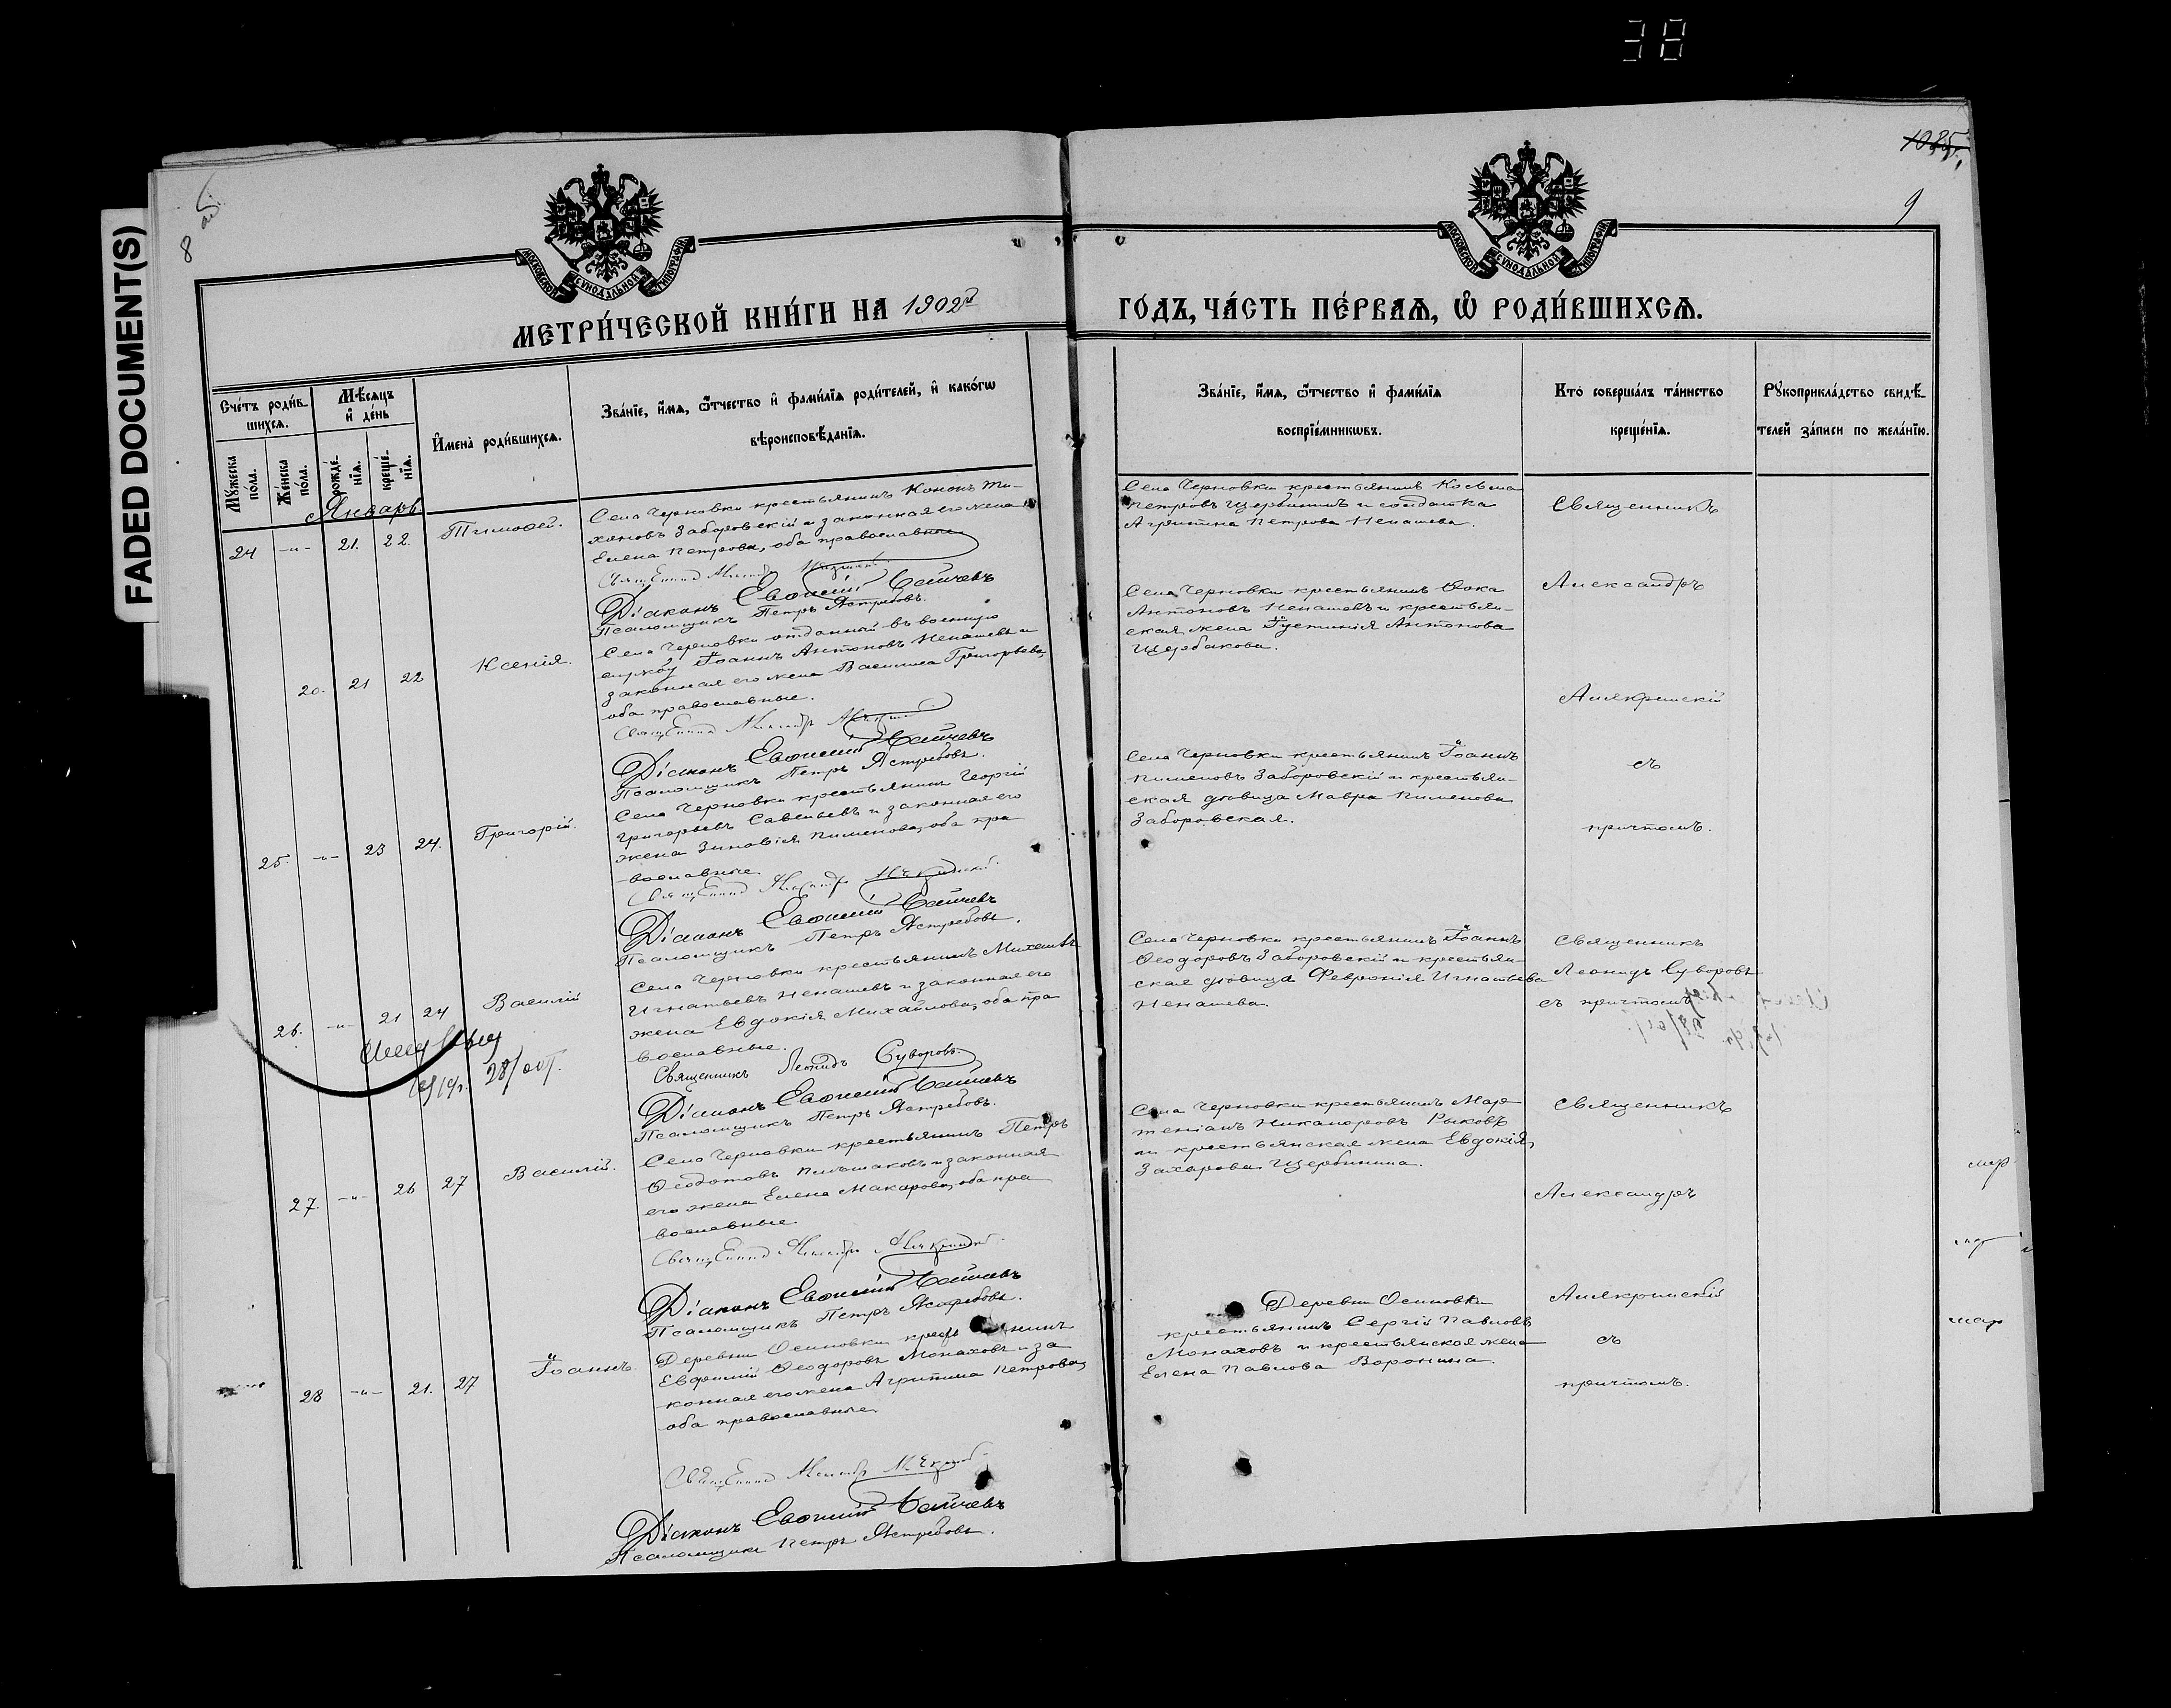 38
FADED DOCUMENT(S)
8 об.
1035.
9
МОСКОВСКОЙ СѴНОДАЛЬНОЙ ТИПОГРАФІИ
МОСКОВСКОЙ СѴНОДАЛЬНОЙ ТИПОГРАФІИ
МЕТРИ́ЧЕСКОЙ КНИ́ГИ НА 1902й
ГОДЪ, ЧА́СТЬ ПЕ́РВАѦ, Ѽ РОДИ́ВШИХСѦ.
Сче́тъ роди́в-
шихсѧ.
Мꙋ́жеска по́ла.
Же́нска по́ла.
Мѣ́сѧцъ и҆ де́нь
рожде́-
нїѧ.
креще́-
нїѧ.
И҆мена̀ роди́вшихсѧ.
Зва́нїе, и҆́мѧ, ѻ҆́тчество и҆ фами́лїѧ роди́телей, и҆ како́гѡ
вѣроисповѣ́данїѧ.
Зва́нїе, и҆́мѧ, ѻ҆́тчество и҆ фами́лїѧ
воспрїе́мникѡвъ.
Кто̀ соверша́лъ та́инство
креще́нїѧ.
Рꙋкоприкла́дство свидѣ́-
телей за́писи по жела́нїю.
Январь
24 -"- 21. 22. Тимофей.
Села Черновки крестьянинъ Кононъ Ти-
хоновъ Заборовскій и законная его жена
Елена Петрова, оба православные
Священникъ Александръ
Діаконъ Евѳимій
Псаломщикъ Петръ Ястребовъ.
Села Черновки крестьянинъ Косьма
Петровъ Щербининъ и солдатка
Агрипина Петрова Ненашева.
Священникъ
20. 21 22 Ксенія.
Села Черновки отданный въ военную
службу Іоаннъ Антоновъ Ненашевъ и
законная его жена Василиса Григорьева,
оба православные.
Священникъ Александръ
Діаконъ Евѳимій
Псаломщикъ Петръ Ястребовъ.
Села Черновки крестьянинъ Ѳока
Антоновъ Ненашевъ и крестьян-
ская жена Іустинія Антонова
Щербакова.
Александръ
Аликринскій
25. -"- 23 24. Григорій.
Села Черновки крестьянинъ Георгій
Григорьевъ Савельевъ и законная его
жена Зиновія Пименова, оба пра
вославные.
Священникъ Александръ
Діаконъ Евѳимій
Псаломщикъ Петръ Ястребовъ.
Села Черновки крестьянинъ Іоаннъ
Пименовъ Заборовскій и крестьян-
ская дѣвица Мавра Пименова
Заборовская.
съ
причтомъ.
26. -"- 21 24 Василій
28/окт.
Села Черновки крестьянинъ Михаилъ
Игнатьевъ Ненашевъ и законная его
жена Евдокія Михайлова, оба пра
вославные.
Священникъ Леонидъ Суворовъ.
Діаконъ Евѳимій
Псаломщикъ Петръ Ястребовъ.
Села Черновки крестьянинъ Іоаннъ
Ѳеодоровъ Заборовскій и крестьян-
ская дѣвица Февронія Игнатьева
Ненашева.
Священникъ
Леонидъ Суворовъ
съ причтомъ
27. -"- 26 27 Василій.
Села Черновки крестьянинъ Петръ
Ѳедотовъ и законная
его жена Елена Макарова, оба пра
вославные.
Священникъ Александръ
Діаконъ Евѳимій
Псаломщикъ Петръ Ястребовъ.
Села Черновки крестьянинъ Мар-
тиніанъ Никаноровъ Рыковъ
и крестьянская жена Евдокія
Захарова Щербинина.
Священникъ
Александръ
28 -"- 21. 27 Іоаннъ.
Деревни Осиновки
Евѳимій Ѳеодоровъ Монаховъ и за
конная его жена Агрипина Петрова,
оба православные.
Священникъ Александръ
Діаконъ Евѳимій
Псаломщикъ Петръ Ястребовъ.
Деревни Осиновки
крестьянинъ Сергій Павловъ
Монаховъ и крестьянская жена
Елена Павлова Воронина.
Аликринскій
съ
причтомъ.